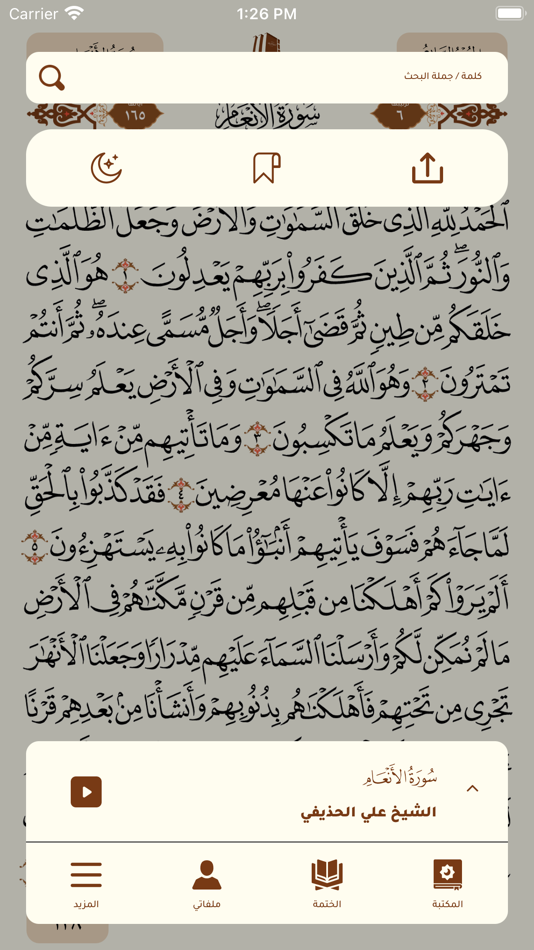 Carrier 1:26 PM
كلمة / جملة البحث
١٦٥ سورة الأنعام ٦
ٱلْحَمْدُ لِلَّهِ ٱلَّذِى خَلَقَ ٱلسَّمَٰوَٰتِ وَٱلْأَرْضَ وَجَعَلَ ٱلظُّلُمَٰتِ
وَٱلنُّورَ ۖ ثُمَّ ٱلَّذِينَ كَفَرُوا۟ بِرَبِّهِمْ يَعْدِلُونَ ١ هُوَ ٱلَّذِى
خَلَقَكُم مِّن طِينٍ ثُمَّ قَضَىٰٓ أَجَلًا ۖ وَأَجَلٌ مُّسَمًّى عِندَهُۥ ۖ ثُمَّ أَنتُمْ
تَمْتَرُونَ ٢ وَهُوَ ٱللَّهُ فِى ٱلسَّمَٰوَٰتِ وَفِى ٱلْأَرْضِ يَعْلَمُ سِرَّكُمْ
وَجَهْرَكُمْ وَيَعْلَمُ مَا تَكْسِبُونَ ٣ وَمَا تَأْتِيهِم مِّنْ ءَايَةٍ مِّنْ
ءَايَٰتِ رَبِّهِمْ إِلَّا كَانُوا۟ عَنْهَا مُعْرِضِينَ ٤ فَقَدْ كَذَّبُوا۟ بِٱلْحَقِّ
لَمَّا جَآءَهُمْ فَسَوْفَ يَأْتِيهِمْ أَنۢبَٰٓؤُا۟ مَا كَانُوا۟ بِهِۦ يَسْتَهْزِءُونَ ٥
أَلَمْ يَرَوْا۟ كَمْ أَهْلَكْنَا مِن قَبْلِهِم مِّن قَرْنٍ مَّكَّنَّٰهُمْ فِى ٱلْأَرْضِ
مَا لَمْ نُمَكِّن لَّكُمْ وَأَرْسَلْنَا ٱلسَّمَآءَ عَلَيْهِم مِّدْرَارًا وَجَعَلْنَا ٱلْأَنْهَٰرَ
تَجْرِى مِن تَحْتِهِمْ فَأَهْلَكْنَٰهُم بِذُنُوبِهِمْ وَأَنشَأْنَا مِنۢ بَعْدِهِمْ قَرْنًا
سُورَةُ الأَنْعَامِ
الشيخ علي الحذيفي
المكتبة الختمة ملفاتي المزيد
١٢٨